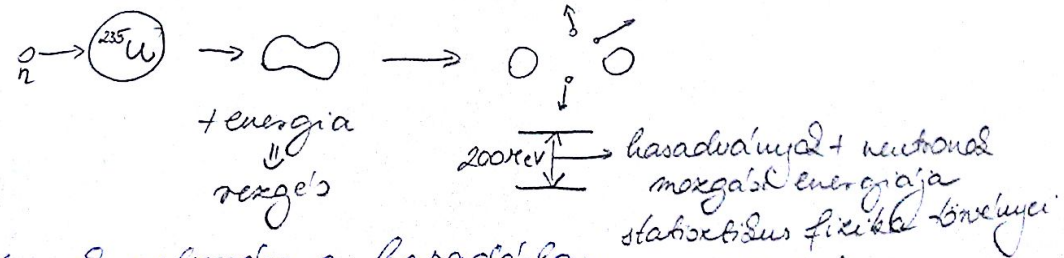 n
²³⁵U
+ energia
⇓
rezgés
200 MeV
hasadványok + neutronok
mozgási energiája
statisztikus fizika törvényei
a hasadáko